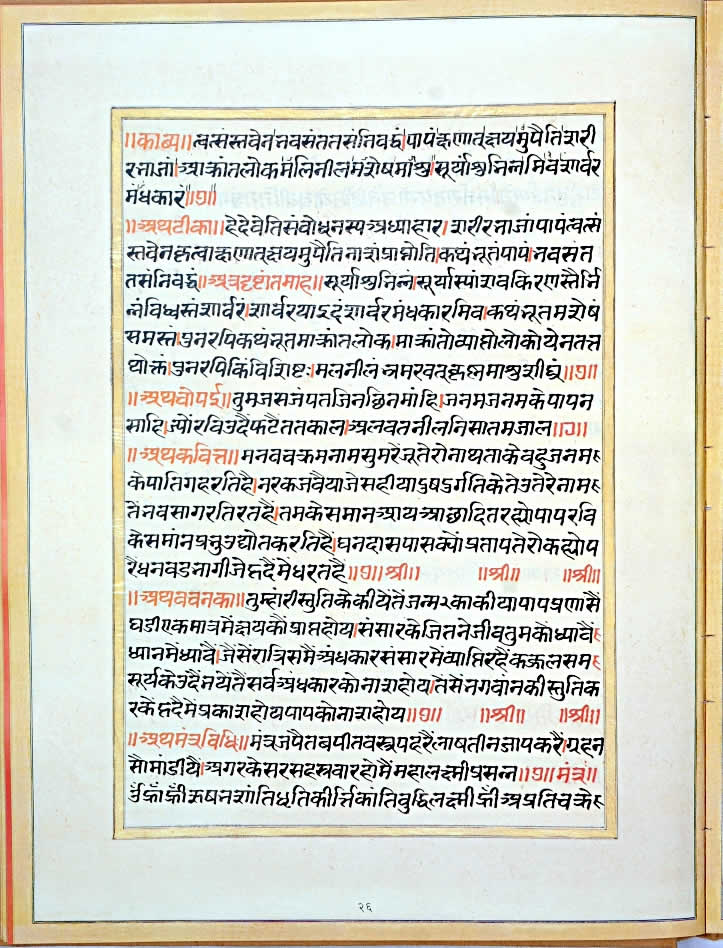 ॥काव्य॥ त्वत्संस्तवेन नवसंततसंनिबद्धं।पापं क्षणात् क्षयमुपैति शरी
रनाजां।आक्रांतलोकमलिनीलमशेषमाशु।सूर्यांशुनिन्नमिव शार्वर
मंधकारं॥७॥
॥अथटीका॥हेदेवेतिसंबोधनस्पअध्याहार।शरीरनाजांपापंत्वत्सं
स्तवेनकृत्वाक्षणात्क्षयमुपैतिनाशंप्राप्नोति।कथंनूतंपापं।नवसंत
तसंनिबद्धं॥अत्रदृष्टांतमाह॥सूर्यांशुनिन्नं।सूर्यास्पांशवकिरणास्तैर्नि
न्नंविध्वस्तंशार्वरं।शर्वरयाइदंशार्वरमंधकारमिव।कथंनूतमशेषं
समस्तं।पुनरपिकथंनूतमाक्रांतलोक।माक्रांतोव्याप्तोलोकोयेनतत्त
थोक्तं।पुनरपिकिंविशिष्टः।मलनीलंभ्रमरवत्कृष्णमाशुशीघ्रं॥७॥
॥अथचोपई॥तुमजसजंपतजिनछिनमांहि।जनमजनमकेपापन
साहि।ज्योंरविउदैफटैततकाल।अलवतनीलनिसातमजाल॥७॥
॥अथकवित्त॥मनवचक्रमनामसुमरेंनूतेरोनाथताकेबहुजनम
केपातिगहरतिहै।नरकजवैयाजेसहीयाडुषडुर्गतिकेतेउतेरेनाम
तेंनवसागरतिरतहैं।तमकेसमानआयआछादितरह्योपापरवि
केसमांनप्रनुउद्योतकरतिहैं।घनदासपासक्योंप्रतापतेरोकह्योप
रैंधनवडनागीजेहृदैंमेंधरतहैं॥७॥श्री॥ ॥श्री॥ ॥श्री॥
॥अथवचनका॥तुम्हांरीस्तुतिकेकीयेतेंजन्म२काकीयापापप्रणासैं
घडीएकमात्रमेंक्षयकौंप्राप्तहोय।संसारकेजितनेजीवतुमकौंध्यावैं
ध्यानमेंध्यावैं।जैसेंरात्रिसमैंअंधकारसंसारमेंव्याप्तिरहैंकज्जलसम
सूर्यकेउदैंनयेतैंसर्वअंधकारकोनाशहोय।तैसेंनगवांनकीस्तुतिक
रकेंहृदैमेंप्रकाशहोयपापकोनाशहोय॥७॥ ॥श्री॥ ॥श्री॥
॥अथमंत्रविधि॥मंत्रजपैतबपीतवस्त्रपहरैंलाषतीनजापकरैं।ग्रहन
सौमांडीयै।अगरकेसरसहस्त्रवारहोमैंमहालक्ष्मीप्रसन्न॥७॥मंत्रं॥
शांतिधृतिकीर्त्तिकांतिबुद्धिलक्ष्मी
२६